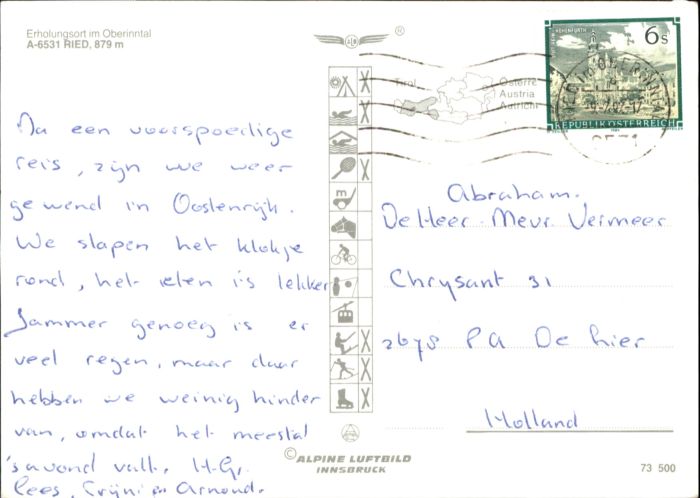 Erholungsort im Oberinntal
A-6531 RIED, 879 m
®
Tirol
Österre
Austria
Autriche
6s
REPUBLIK ÖSTERREICH
Na een voorspoedige
reis, zijn we weer
gewend in Oostenrijk.
We slapen het klokje
rond, het eten is lekker
Jammer genoeg is er
veel regen, maar daar
hebben we weinig hinder
van, omdat het meestal
's avond valt. H-Gr.
Cees, Trijni en Arnoud.
Abraham.
De Heer. Mevr Vermeer
Chrysant 31
2678 PA De Lier
Holland
© ALPINE LUFTBILD
INNSBRUCK
73 500